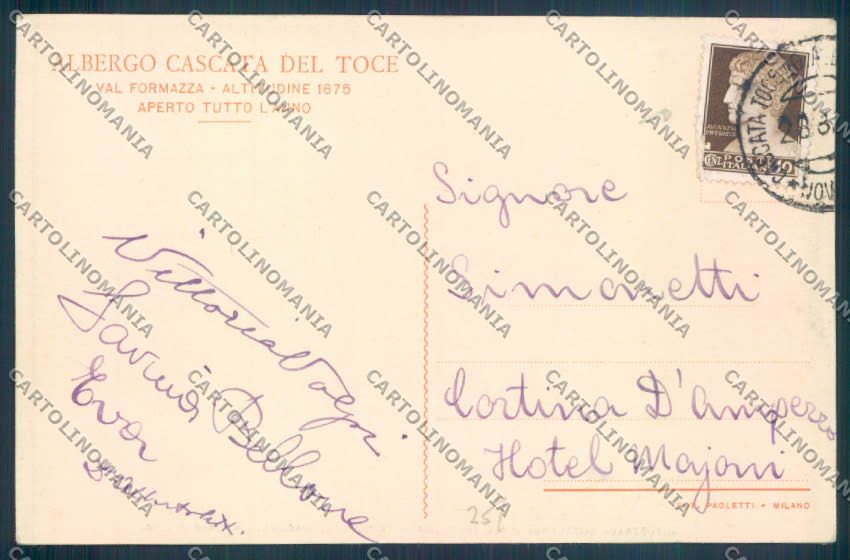 ALBERGO CASCATA DEL TOCE
VAL FORMAZZA - ALTITUDINE 1675
APERTO TUTTO L'ANNO
AVGVSTVS
IMPERATOR
CENT.
POSTE
ITALIANE
CASCATA TOCE
28
NOV
Signore
Simonetti
Cortina D'Ampezzo
Hotel Majoni
Vittoria Volpi
Savina Bellone
Eva
PAOLETTI - MILANO
25€
CARTOLINOMANIA